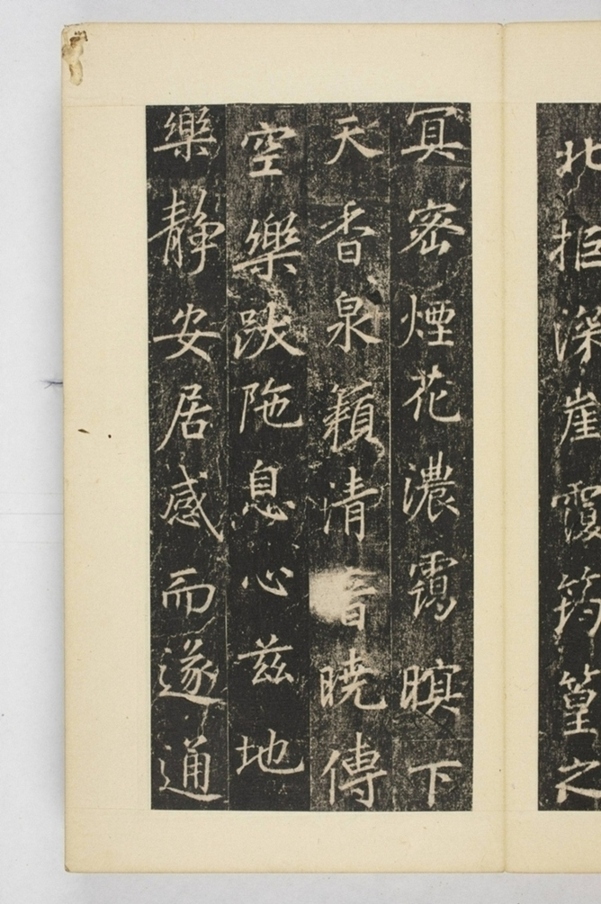 北拒深崖覆筠篁之
冥密煙花濃靄暝下
天香泉籟清音曉傳
空樂跋陁息心茲地
樂靜安居感而遂通